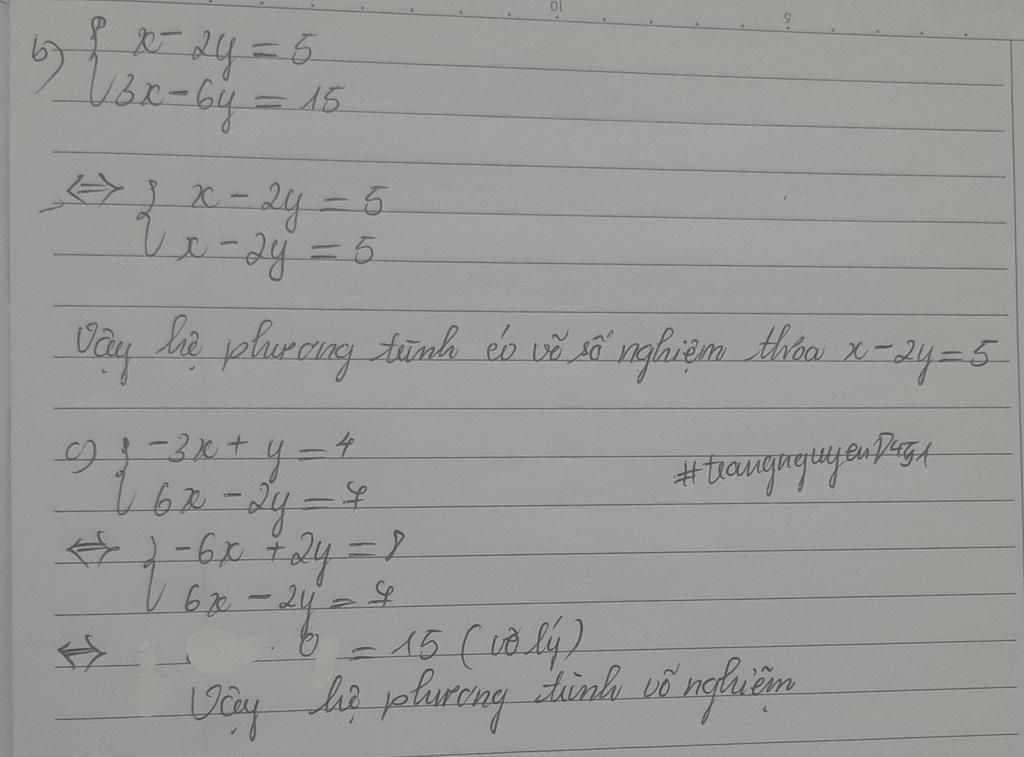 b) { x - 2y = 5
3x - 6y = 15
⇔ { x - 2y = 5
x - 2y = 5
Vậy hệ phương trình có vô số nghiệm thỏa x - 2y = 5
c) { -3x + y = 4
6x - 2y = 7
⇔ { -6x + 2y = 8
6x - 2y = 7
⇔ 0 = 15 (vô lý)
Vậy hệ phương trình vô nghiệm